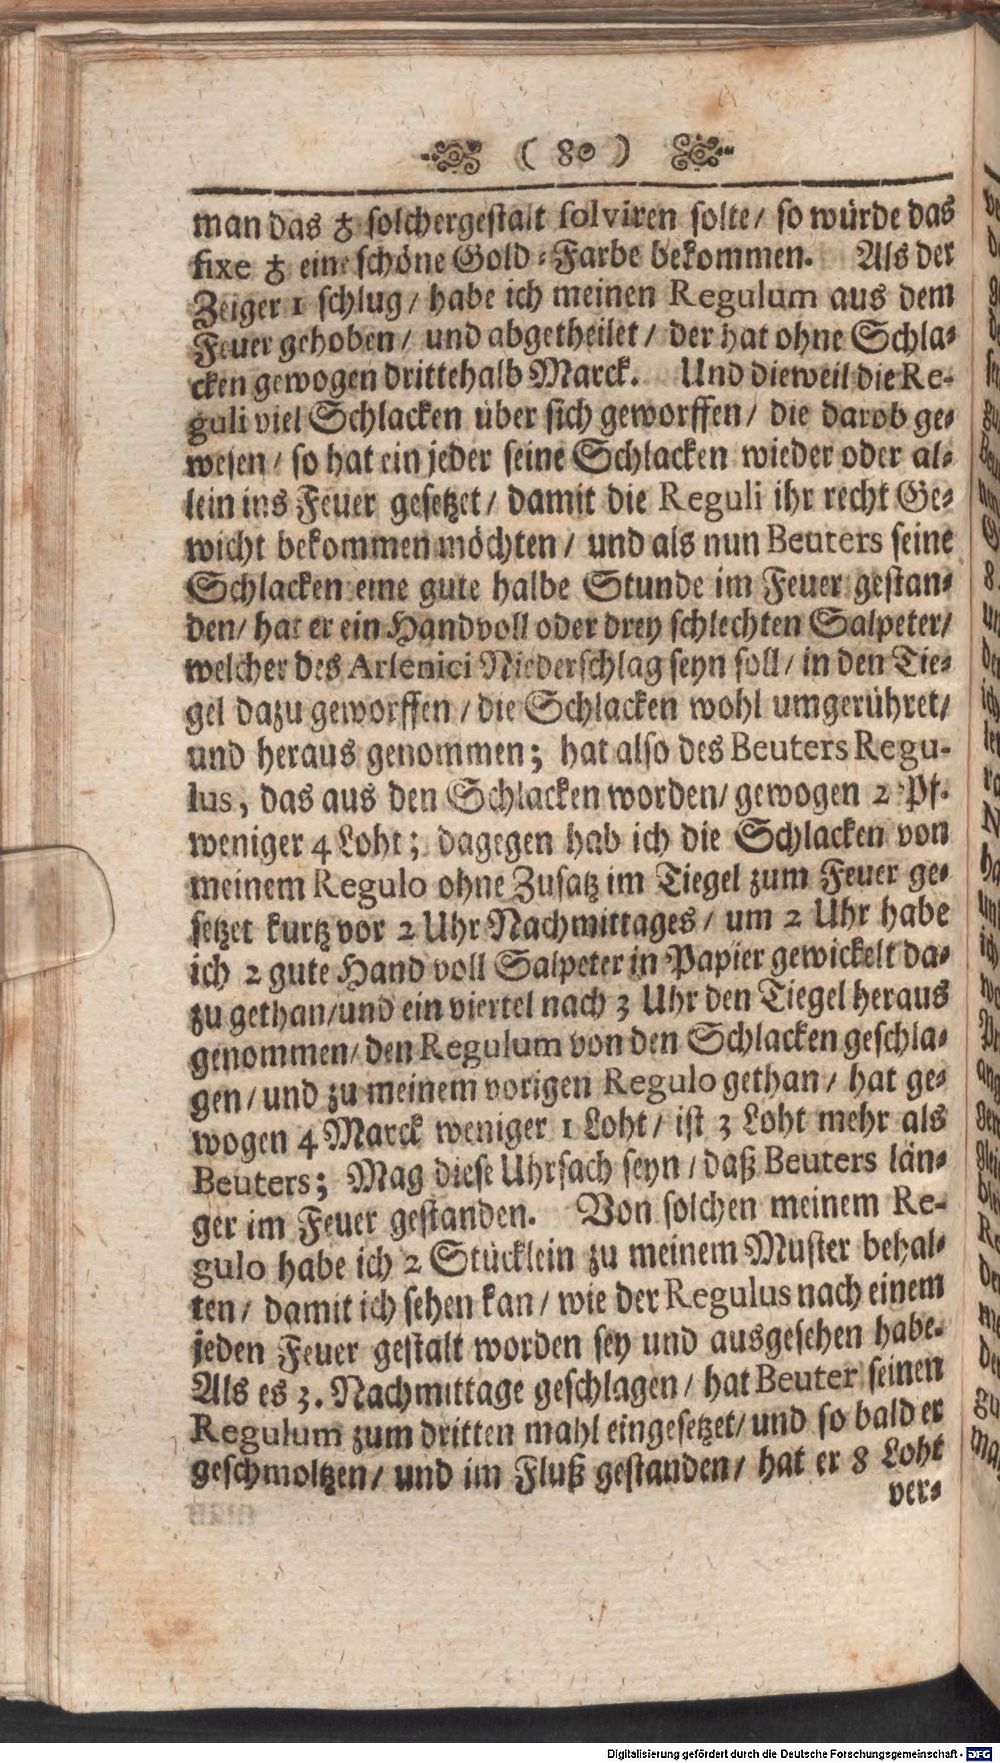 ( 80 )
man das ♁ solchergestalt solviren solte/ so würde das
fixe ♁ eine schöne Gold-Farbe bekommen. Als der
Zeiger 1 schlug/ habe ich meinen Regulum aus dem
Feuer gehoben/ und abgetheilet/ der hat ohne Schla-
cken gewogen drittehalb Marck. Und dieweil die Re-
guli viel Schlacken über sich geworffen/ die darob ge-
wesen/ so hat ein jeder seine Schlacken wieder oder al-
lein ins Feuer gesetzet/ damit die Reguli ihr recht Ge-
wicht bekommen möchten/ und als nun Beuters seine
Schlacken eine gute halbe Stunde im Feuer gestan-
den/ hat er ein Handvoll oder drey schlechten Salpeter/
welcher des Arsenici Niederschlag seyn soll/ in den Tie-
gel dazu geworffen/ die Schlacken wohl umgerühret/
und heraus genommen; hat also des Beuters Regu-
lus, das aus den Schlacken worden/ gewogen 2 Pf.
weniger 4 Loht; dagegen hab ich die Schlacken von
meinem Regulo ohne Zusatz im Tiegel zum Feuer ge-
setzet kurtz vor 2 Uhr Nachmittages/ um 2 Uhr habe
ich 2 gute Hand voll Salpeter in Papier gewickelt da-
zu gethan/und ein viertel nach 3 Uhr den Tiegel heraus
genommen/ den Regulum von den Schlacken geschla-
gen/ und zu meinem vorigen Regulo gethan/ hat ge-
wogen 4 Marck weniger 1 Loht/ ist 3 Loht mehr als
Beuters; Mag diese Uhrsach seyn/ daß Beuters län-
ger im Feuer gestanden. Von solchen meinem Re-
gulo habe ich 2 Stücklein zu meinem Muster behal-
ten/ damit ich sehen kan/ wie der Regulus nach einem
jeden Feuer gestalt worden sey und ausgesehen habe.
Als es 3. Nachmittage geschlagen/ hat Beuter seinen
Regulum zum dritten mahl eingesetzet/ und so bald er
geschmoltzen/ und im Fluß gestanden/ hat er 8 Loht
ver-
Digitalisierung gefördert durch die Deutsche Forschungsgemeinschaft - DFG